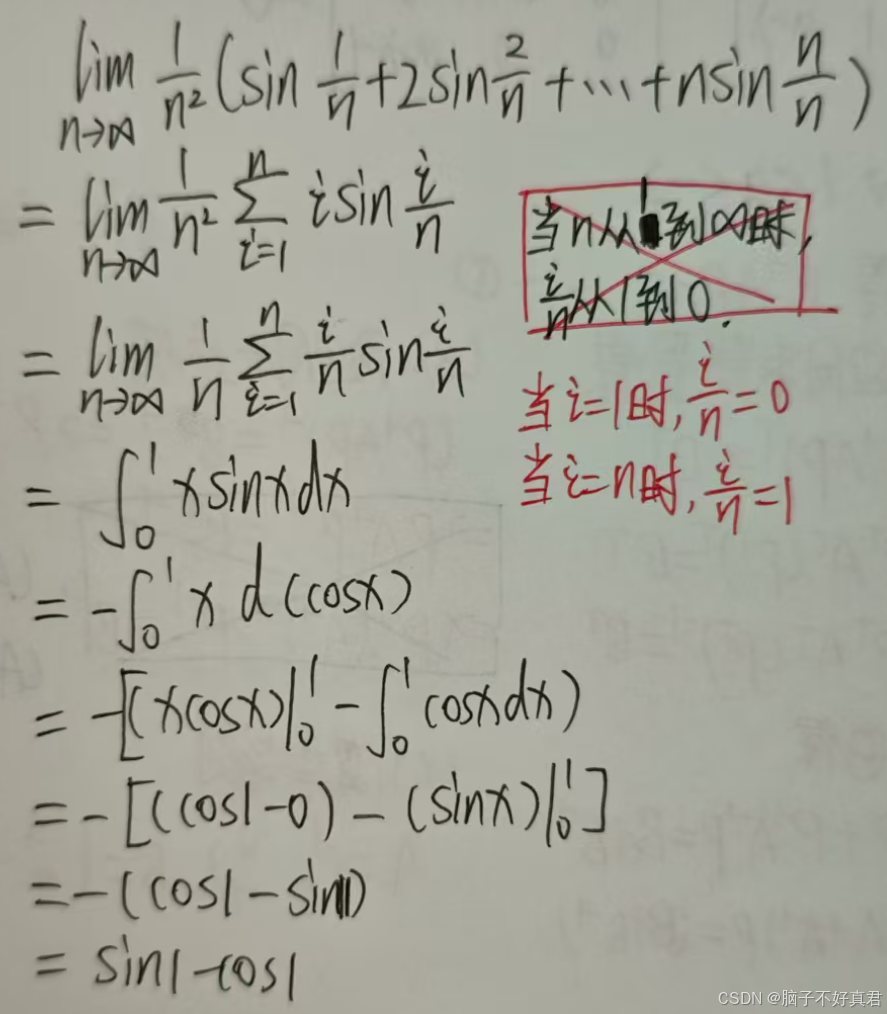 lim n→∞ 1/n² (sin 1/n + 2sin 2/n + ⋯ + nsin n/n)
= lim n→∞ 1/n² ∑ i=1 n i sin i/n
当n从1到∞时,
i/n从1到0.
= lim n→∞ 1/n ∑ i=1 n i/n sin i/n
当i=1时, i/n=0
当i=n时, i/n=1
= ∫₀¹ x sinx dx
= -∫₀¹ x d(cosx)
= -[(xcosx)|₀¹ - ∫₀¹ cosx dx)
= -[(cos1-0) - (sinx)|₀¹]
= -(cos1-sin1)
= sin1-cos1
CSDN @脑子不好真君